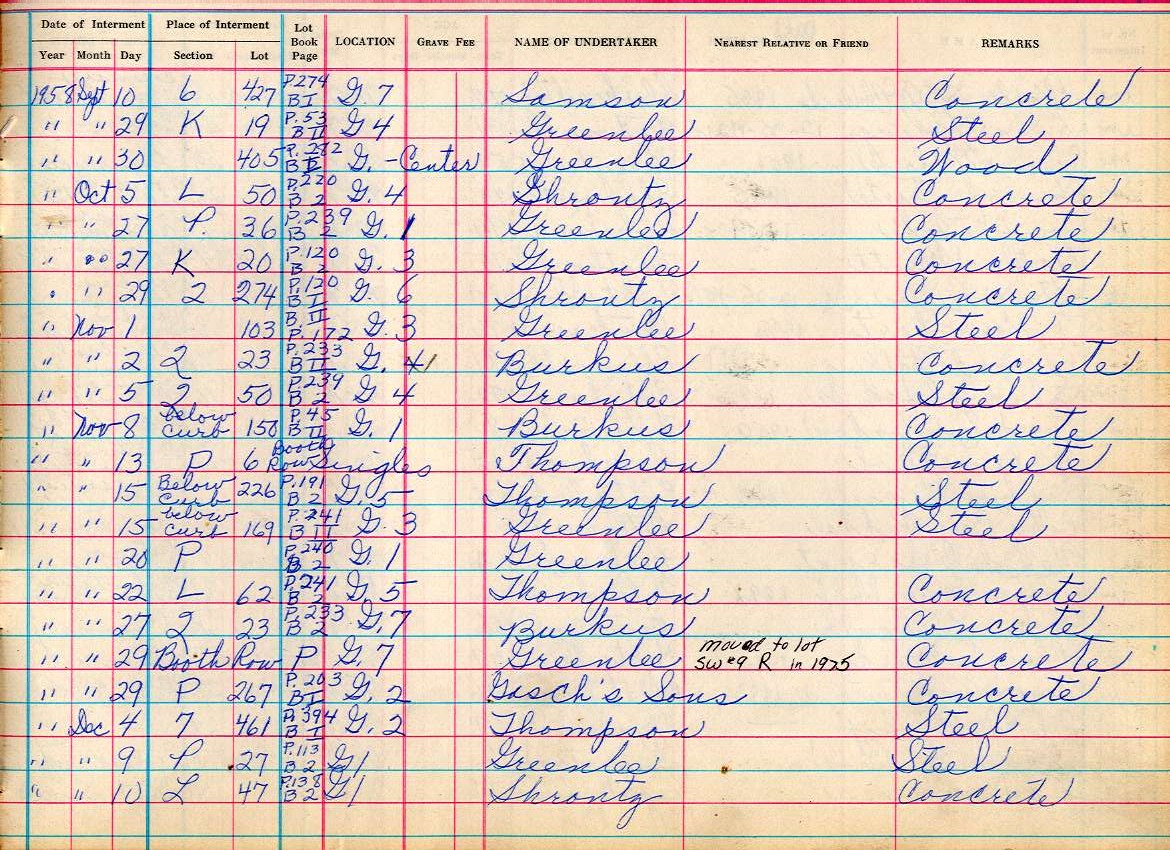 Date of Interment Place of Interment Lot Book Page LOCATION GRAVE FEE NAME OF UNDERTAKER NEAREST RELATIVE OR FRIEND REMARKS
Year Month Day Section Lot
1958 Sept 10 6 427 P.274 B I G. 7 Samson Concrete
" " 29 K 19 P.53 B II G 4 Greenlee Steel
" " 30 405 P. 282 B G. - Center Greenlee Wood
" Oct 5 L 50 P.220 B 2 G. 4 Shrontz Concrete
" " 27 P. 36 P.239 B 2 G. 1 Greenlee Concrete
" " 27 K 20 P.120 B 2 G. 3 Greenlee Concrete
" " 29 2 274 P.120 B I G. 6 Shrontz Concrete
" Nov 1 103 B. II P. 172 G. 3 Greenlee Steel
" " 2 2 23 P.233 B II G. 4 Burkus Concrete
" " 5 2 50 P.239 B 2 G 4 Greenlee Steel
" Nov 8 below curb 150 P.45 B II G. 1 Burkus Concrete
" " 13 P 6 Booth Row Singles Thompson Concrete
" " 15 Below Curb 226 P.191 B 2 G. 5 Thompson Steel
" " 15 below curb 169 P.241 B II G. 3 Greenlee Steel
" " 20 P P.240 B 2 G. 1 Greenlee
" " 22 L 62 P.241 B 2 G. 5 Thompson Concrete
" " 27 2 23 P.233 B 2 G. 7 Burkus Concrete
" " 29 Booth Row P G. 7 Greenlee moved to lot R in 1975 Concrete
" " 29 P 267 P. 203 B I G. 2 Gasch's Sons Concrete
" Dec 4 7 461 P. 394 B I G. 2 Thompson Steel
" " 9 P 27 P.113 B 2 G 1 Greenlee Steel
" " 10 L 47 P.138 B 2 G 1 Shrontz Concrete